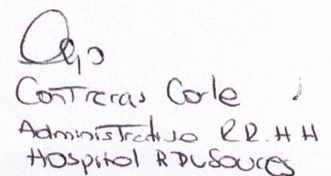 Contreras Corle
Administrativo RR.HH
Hospital